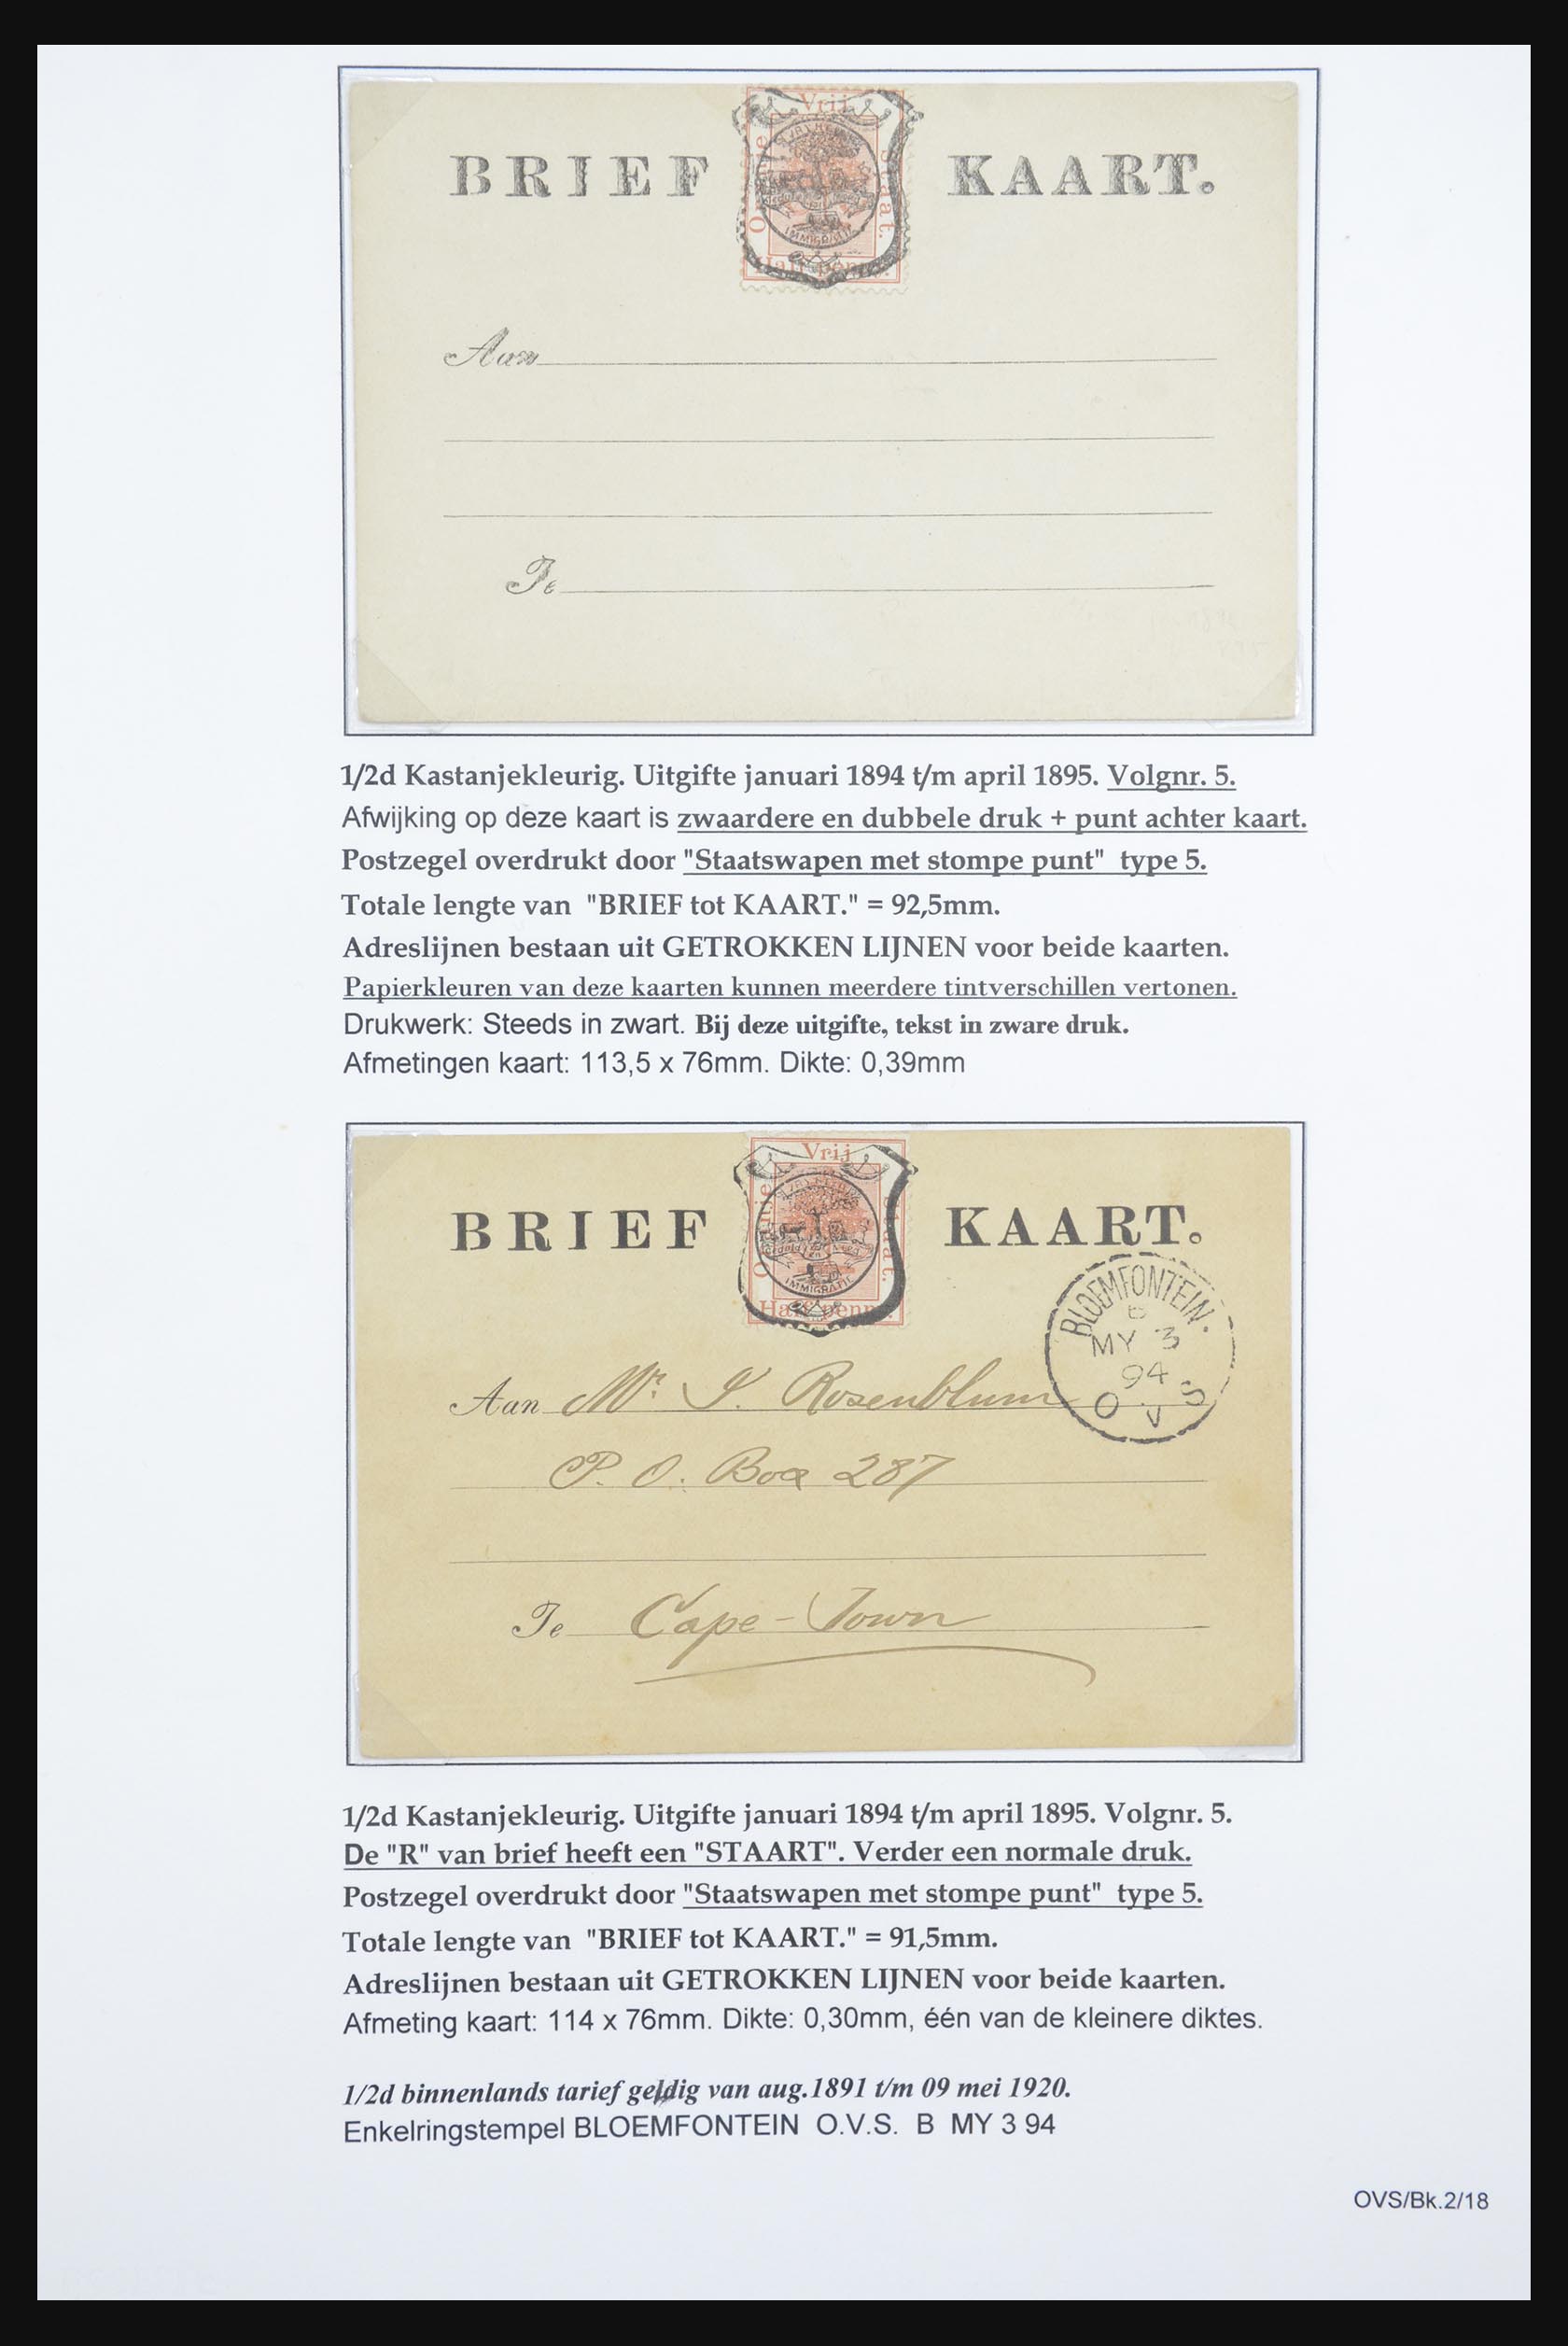 Vrij
BRIEF KAART.
Oranje
Staat.
IMMIGRATIE
Half penny.
Aan
Te
1/2d Kastanjekleurig. Uitgifte januari 1894 t/m april 1895. Volgnr. 5.
Afwijking op deze kaart is zwaardere en dubbele druk + punt achter kaart.
Postzegel overdrukt door "Staatswapen met stompe punt" type 5.
Totale lengte van "BRIEF tot KAART." = 92,5mm.
Adreslijnen bestaan uit GETROKKEN LIJNEN voor beide kaarten.
Papierkleuren van deze kaarten kunnen meerdere tintverschillen vertonen.
Drukwerk: Steeds in zwart. Bij deze uitgifte, tekst in zware druk.
Afmetingen kaart: 113,5 x 76mm. Dikte: 0,39mm
Vrij
BRIEF KAART.
Oranje
Staat.
IMMIGRATIE
Half penny.
BLOEMFONTEIN.
B
MY 3
94
O V S
Aan Mr. I. Rosenblum
P. O. Box 287
Te Cape-Town
1/2d Kastanjekleurig. Uitgifte januari 1894 t/m april 1895. Volgnr. 5.
De "R" van brief heeft een "STAART". Verder een normale druk.
Postzegel overdrukt door "Staatswapen met stompe punt" type 5.
Totale lengte van "BRIEF tot KAART." = 91,5mm.
Adreslijnen bestaan uit GETROKKEN LIJNEN voor beide kaarten.
Afmeting kaart: 114 x 76mm. Dikte: 0,30mm, één van de kleinere diktes.
1/2d binnenlands tarief geldig van aug.1891 t/m 09 mei 1920.
Enkelringstempel BLOEMFONTEIN O.V.S. B MY 3 94
OVS/Bk.2/18